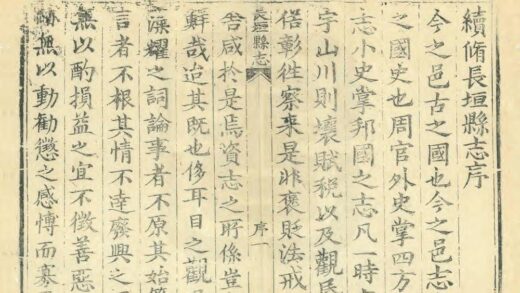 續脩長垣縣志序
今之邑古之國也今之邑志
之國史也周官外史掌四方
志小史掌邦國之志凡一時
宇山川則壤賦稅以及觀民
俗彰往察来是非褒貶法戒
長垣縣志
序一
咎咸於是焉資志之所係豈
鮮哉迨其既也侈耳目之觀
藻耀之詞論事者不原其始
言者不根其情不幸廢興之
無以酌損益之宜不徵善惡
無以動勸懲之感慱而寡